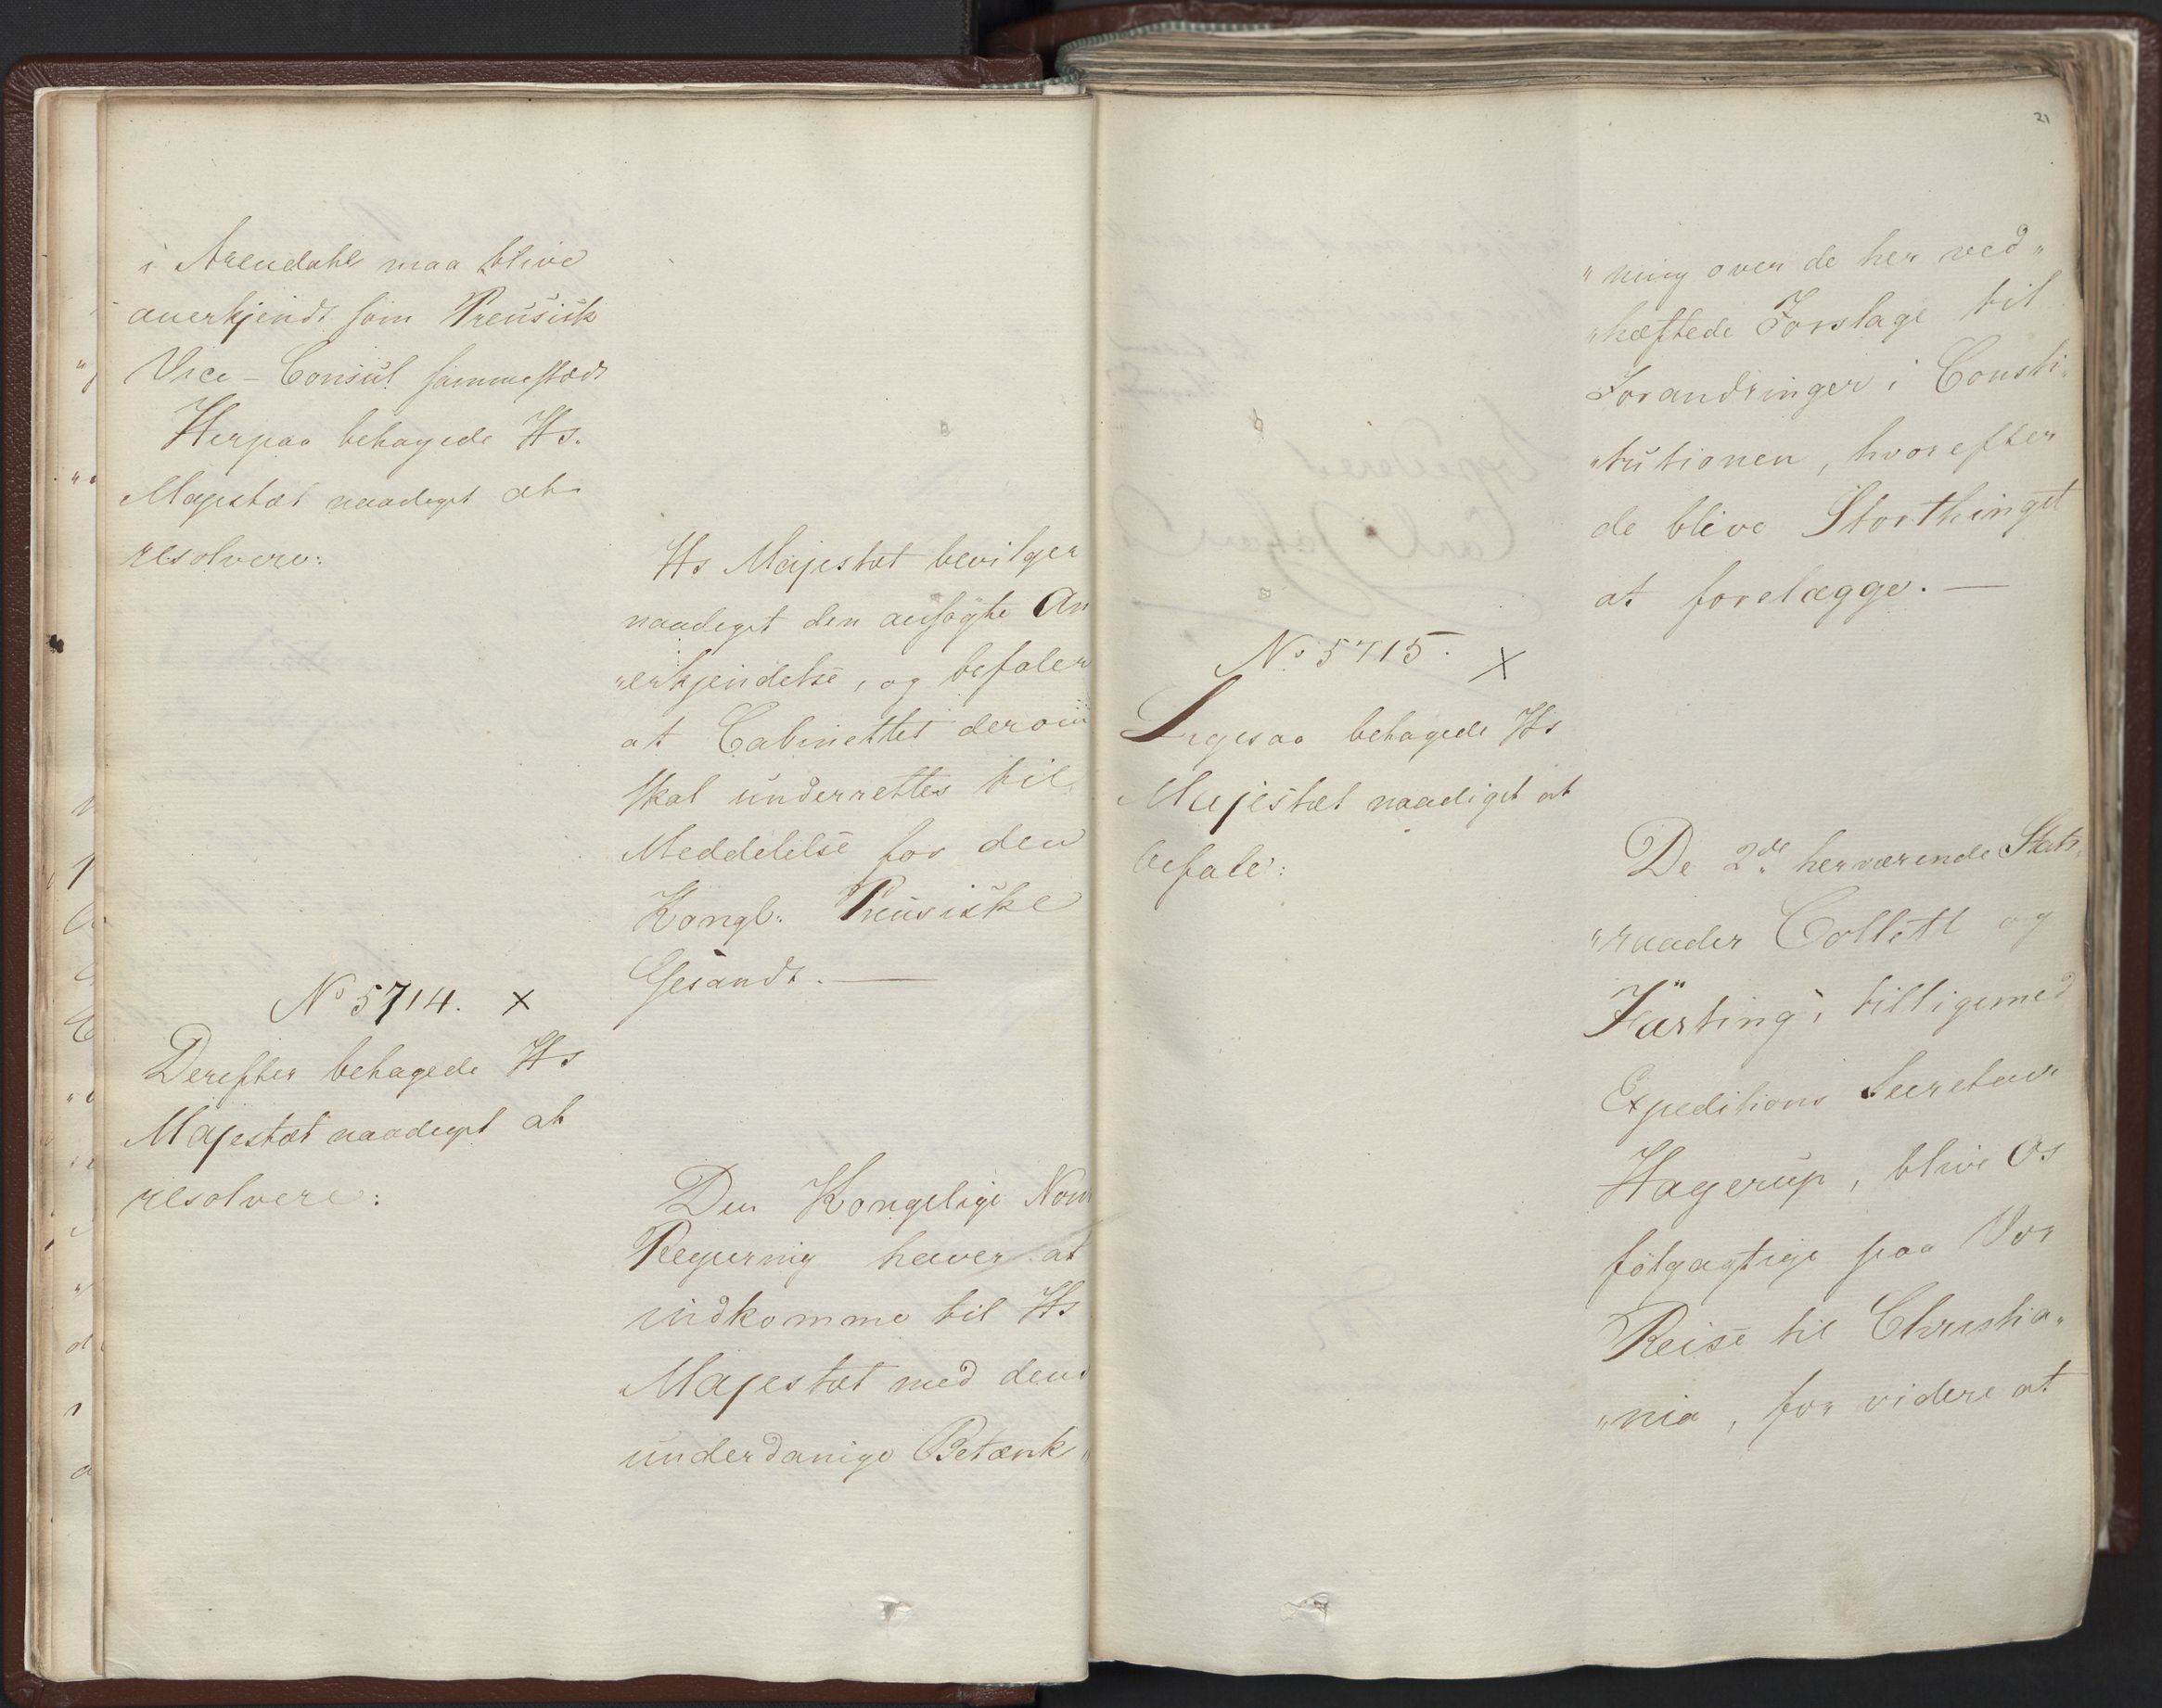 i Arendahl maa blive
anerkjendt som Preusisk
Vice-Consul sammestæds
Herpaa behagede Hs.
Majestæt naadigst at
resolvere:
Hs Majestæt bevilger
naadigst den ansøgte An
"erkjendelse, og befaler
at Cabinettet derom
skal underrettes til
Meddelelse for den
Kongl: Preusiske
Gesandt. —
No 5714. ×
Derefter behagede Hs
Majestæt naadigst at
resolvere:
Den Kongelige Nors
Regjering haver at
indkomme til Hs
Majestæt med dens
underdanige Betænk"
21
"ning over de her ved"
"hæftede Forslage til
Forandringer i Consti"
"tutionen, hvorefter
de blive Storthinget
at forelægge. —
No 5715. ×
Ligesaa behagede Hs
Majestæt naadigst at
befale:
De 2de herværende Stats"
"raader Collett og
Fasting, tilligemed
Expeditions Secretair
Hagerup, blive Os
følgagtige paa Vor
Reise til Christia"
"nia, for videre at